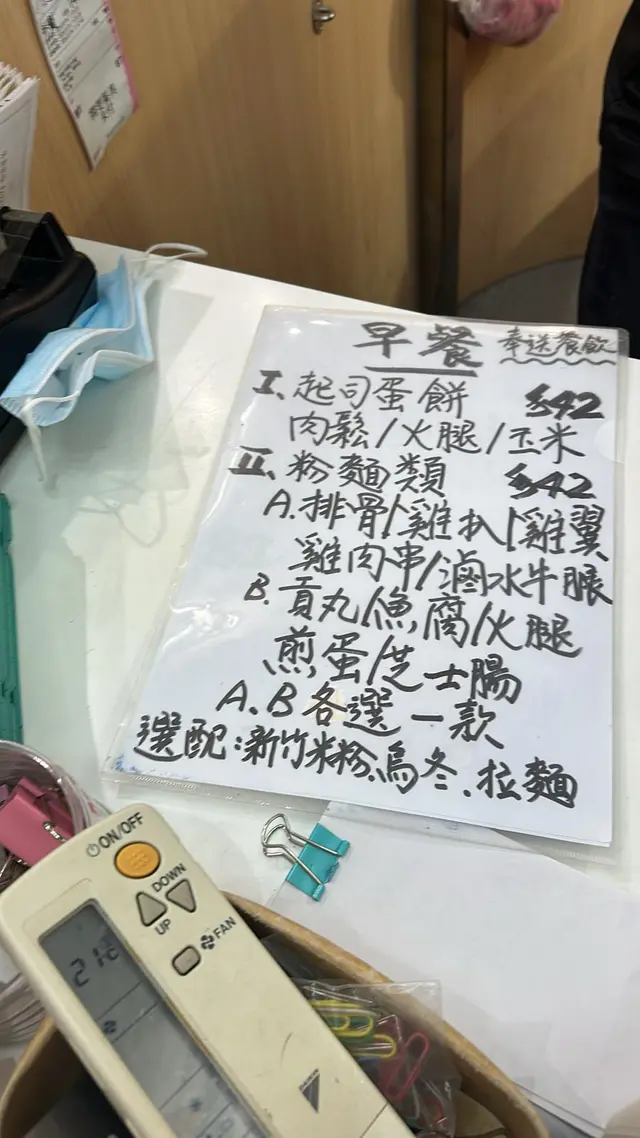 早餐 奉送餐飲
I、起司蛋餅 $42
肉鬆/火腿/玉米
II、粉麵類 $42
A.排骨/雞扒/雞翼
雞肉串/滷水牛腸
B.貢丸/魚腐/火腿
煎蛋/芝士腸
A.B各選一款
選配:新竹米粉、烏冬、拉麵
ON/OFF
DOWN
UP
FAN
21℃